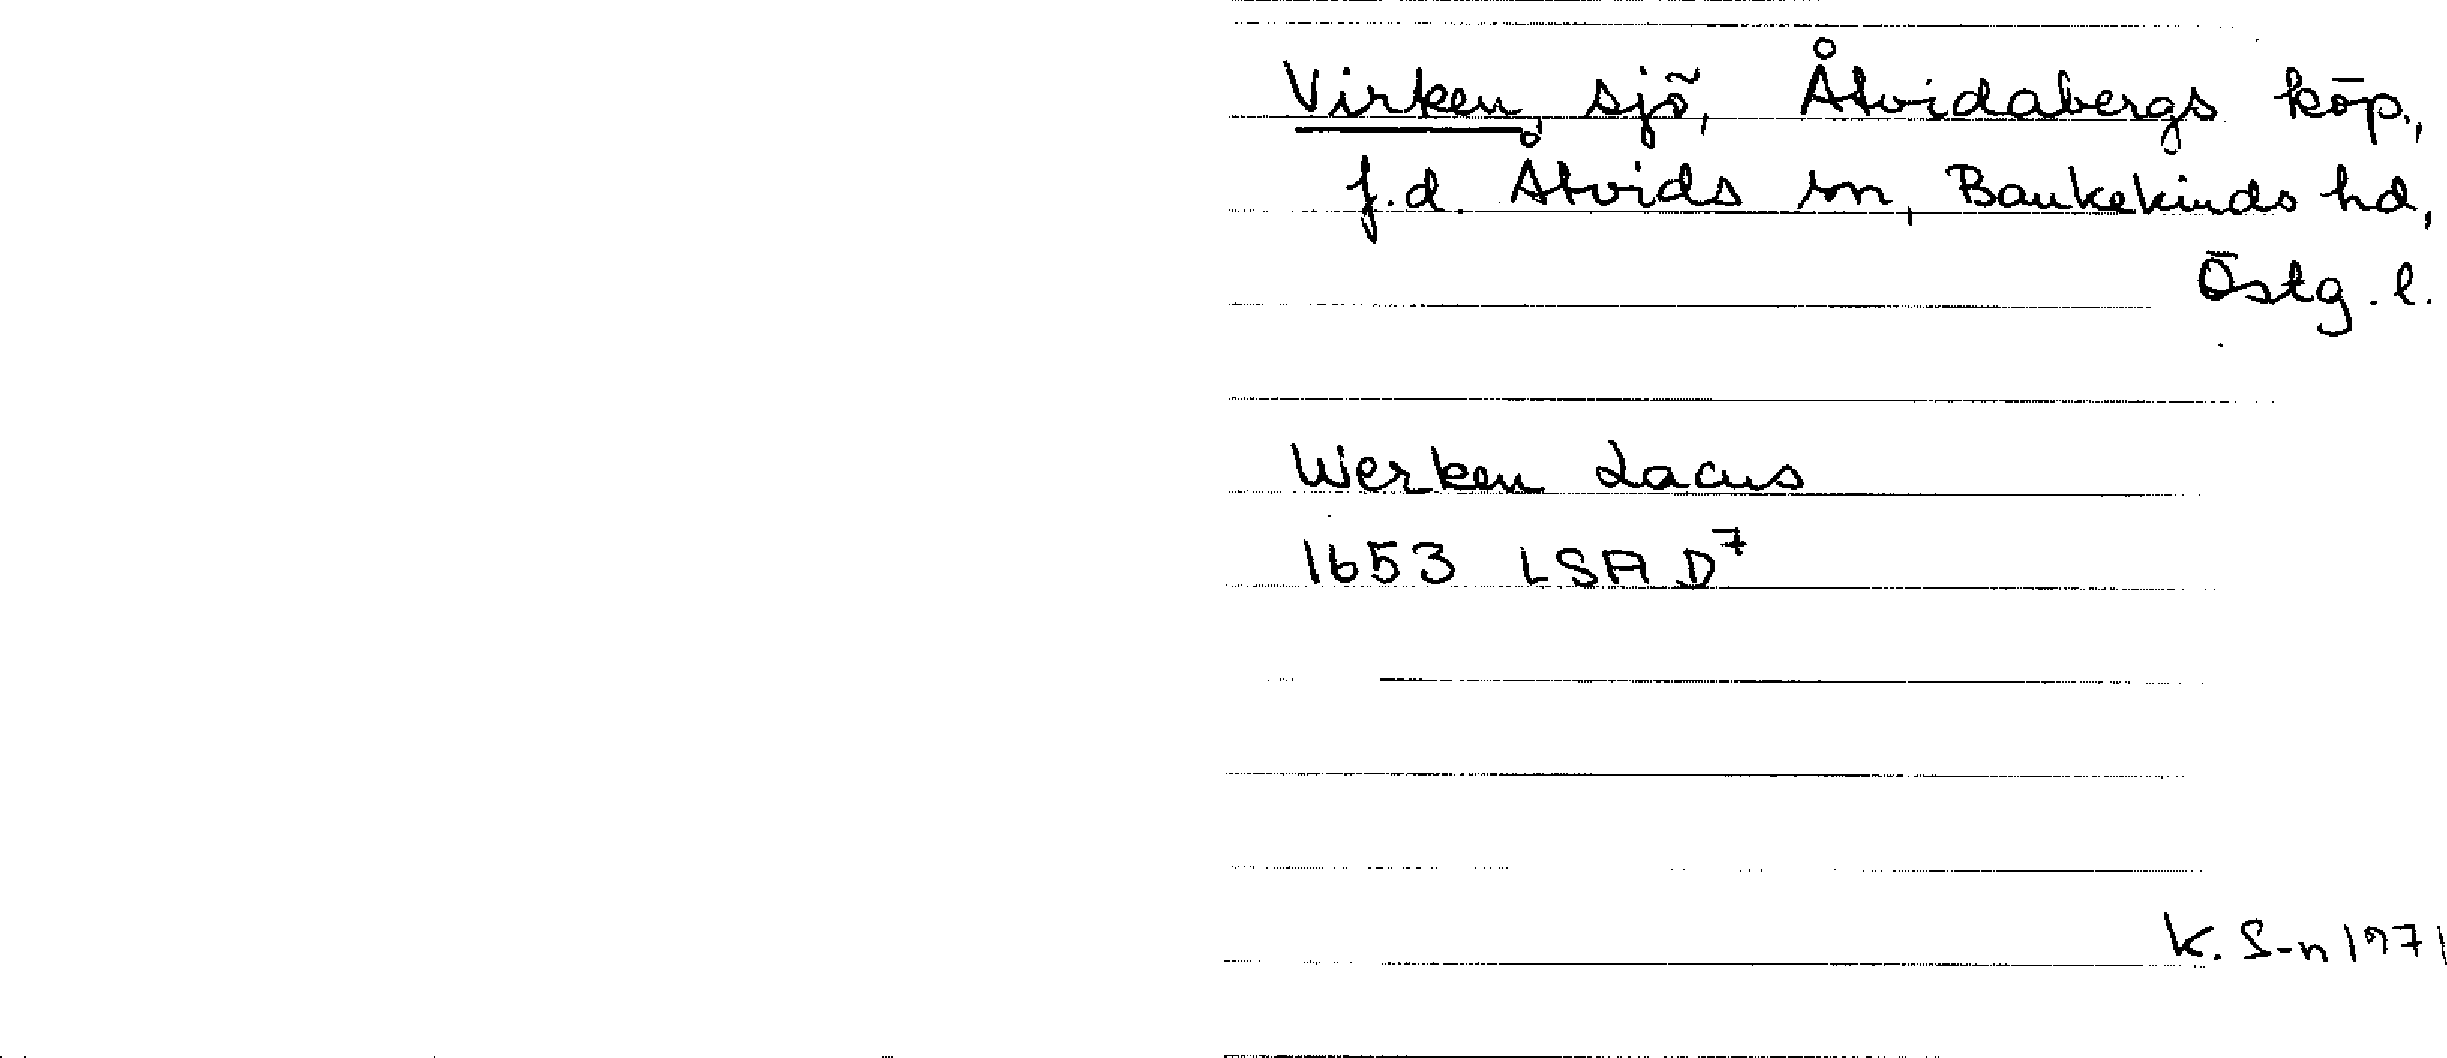 Virken, sjö, Åtvidabergs köp.,
f.d. Åtvids sn, Bankekinds hd,
Östg. l.
Werken Lacus
1653 LSA D⁷
K. S-n 1971